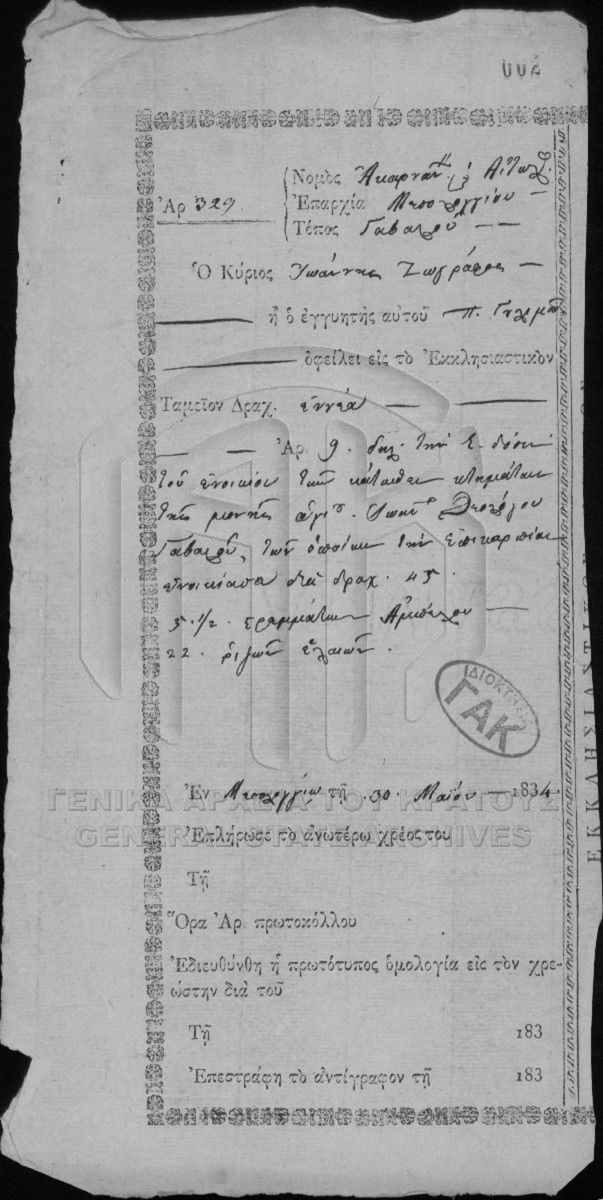 002
Νομὸς Ἀκαρναν. ϗ Αἰτωλ.
Ἀρ 329 Ἐπαρχία Μεσολογγίου
Τόπος Γαβαλοῦ
Ὁ Κύριος Ἰωάννης Ζωγράφος
ἢ ὁ ἐγγυητὴς αὐτοῦ Π.
ὀφείλει εἰς τὸ Ἐκκλησιαστικὸν
Ταμεῖον Δραχ. ἐννέα
Ἀρ. 9. δηλ. τὴν δόσιν
τοῦ ἐνοικίου τῶν κάτωθεν κτημάτων
τῆς μονῆς ἁγίου Ἰωάνν. Θεολόγου
Γαβαλοῦς, τῶν ὁποίων τὴν ἐπικαρπίαν
ἐνοικίασε διὰ δραχ. 45.
5. 1/2. στρεμμάτων Ἀμπέλου
22. ῥιζῶν ἐλαιῶν.
ΙΔΙΟΚΤΗΣΙΑ
ΓΑΚ
Ἐν Μεσολογγίῳ τῇ 30 Μαΐου 1834.
ΓΕΝΙΚΑ ΑΡΧΕΙΑ ΤΟΥ ΚΡΑΤΟΥΣ
GENERAL STATE ARCHIVES
Ἐπλήρωσε τὸ ἀνωτέρω χρέος του
Τῇ
Ὅρα Ἀρ πρωτοκόλλου
Ἐδιευθύνθη ἡ πρωτότυπος ὁμολογία εἰς τὸν χρε-
ώστην διὰ τοῦ
Τῇ 183
Ἐπεστράφη τὸ ἀντίγραφον τῇ 183
ΕΚΚΛΗΣΙΑΣΤΙΚΟΝ